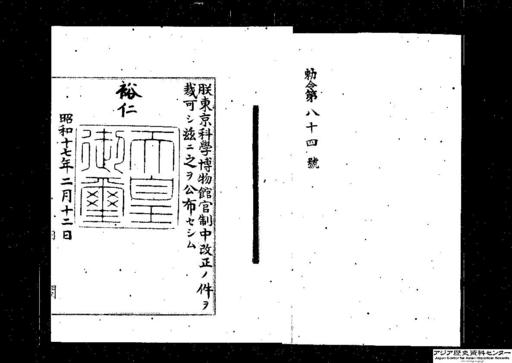 勅令第八十四號
朕東京科學博物館官制中改正ノ件ヲ
裁可シ茲ニ之ヲ公布セシム
裕仁
天皇
御璽
昭和十七年二月十二日
アジア歴史資料センター
Japan Center for Asian Historical Records